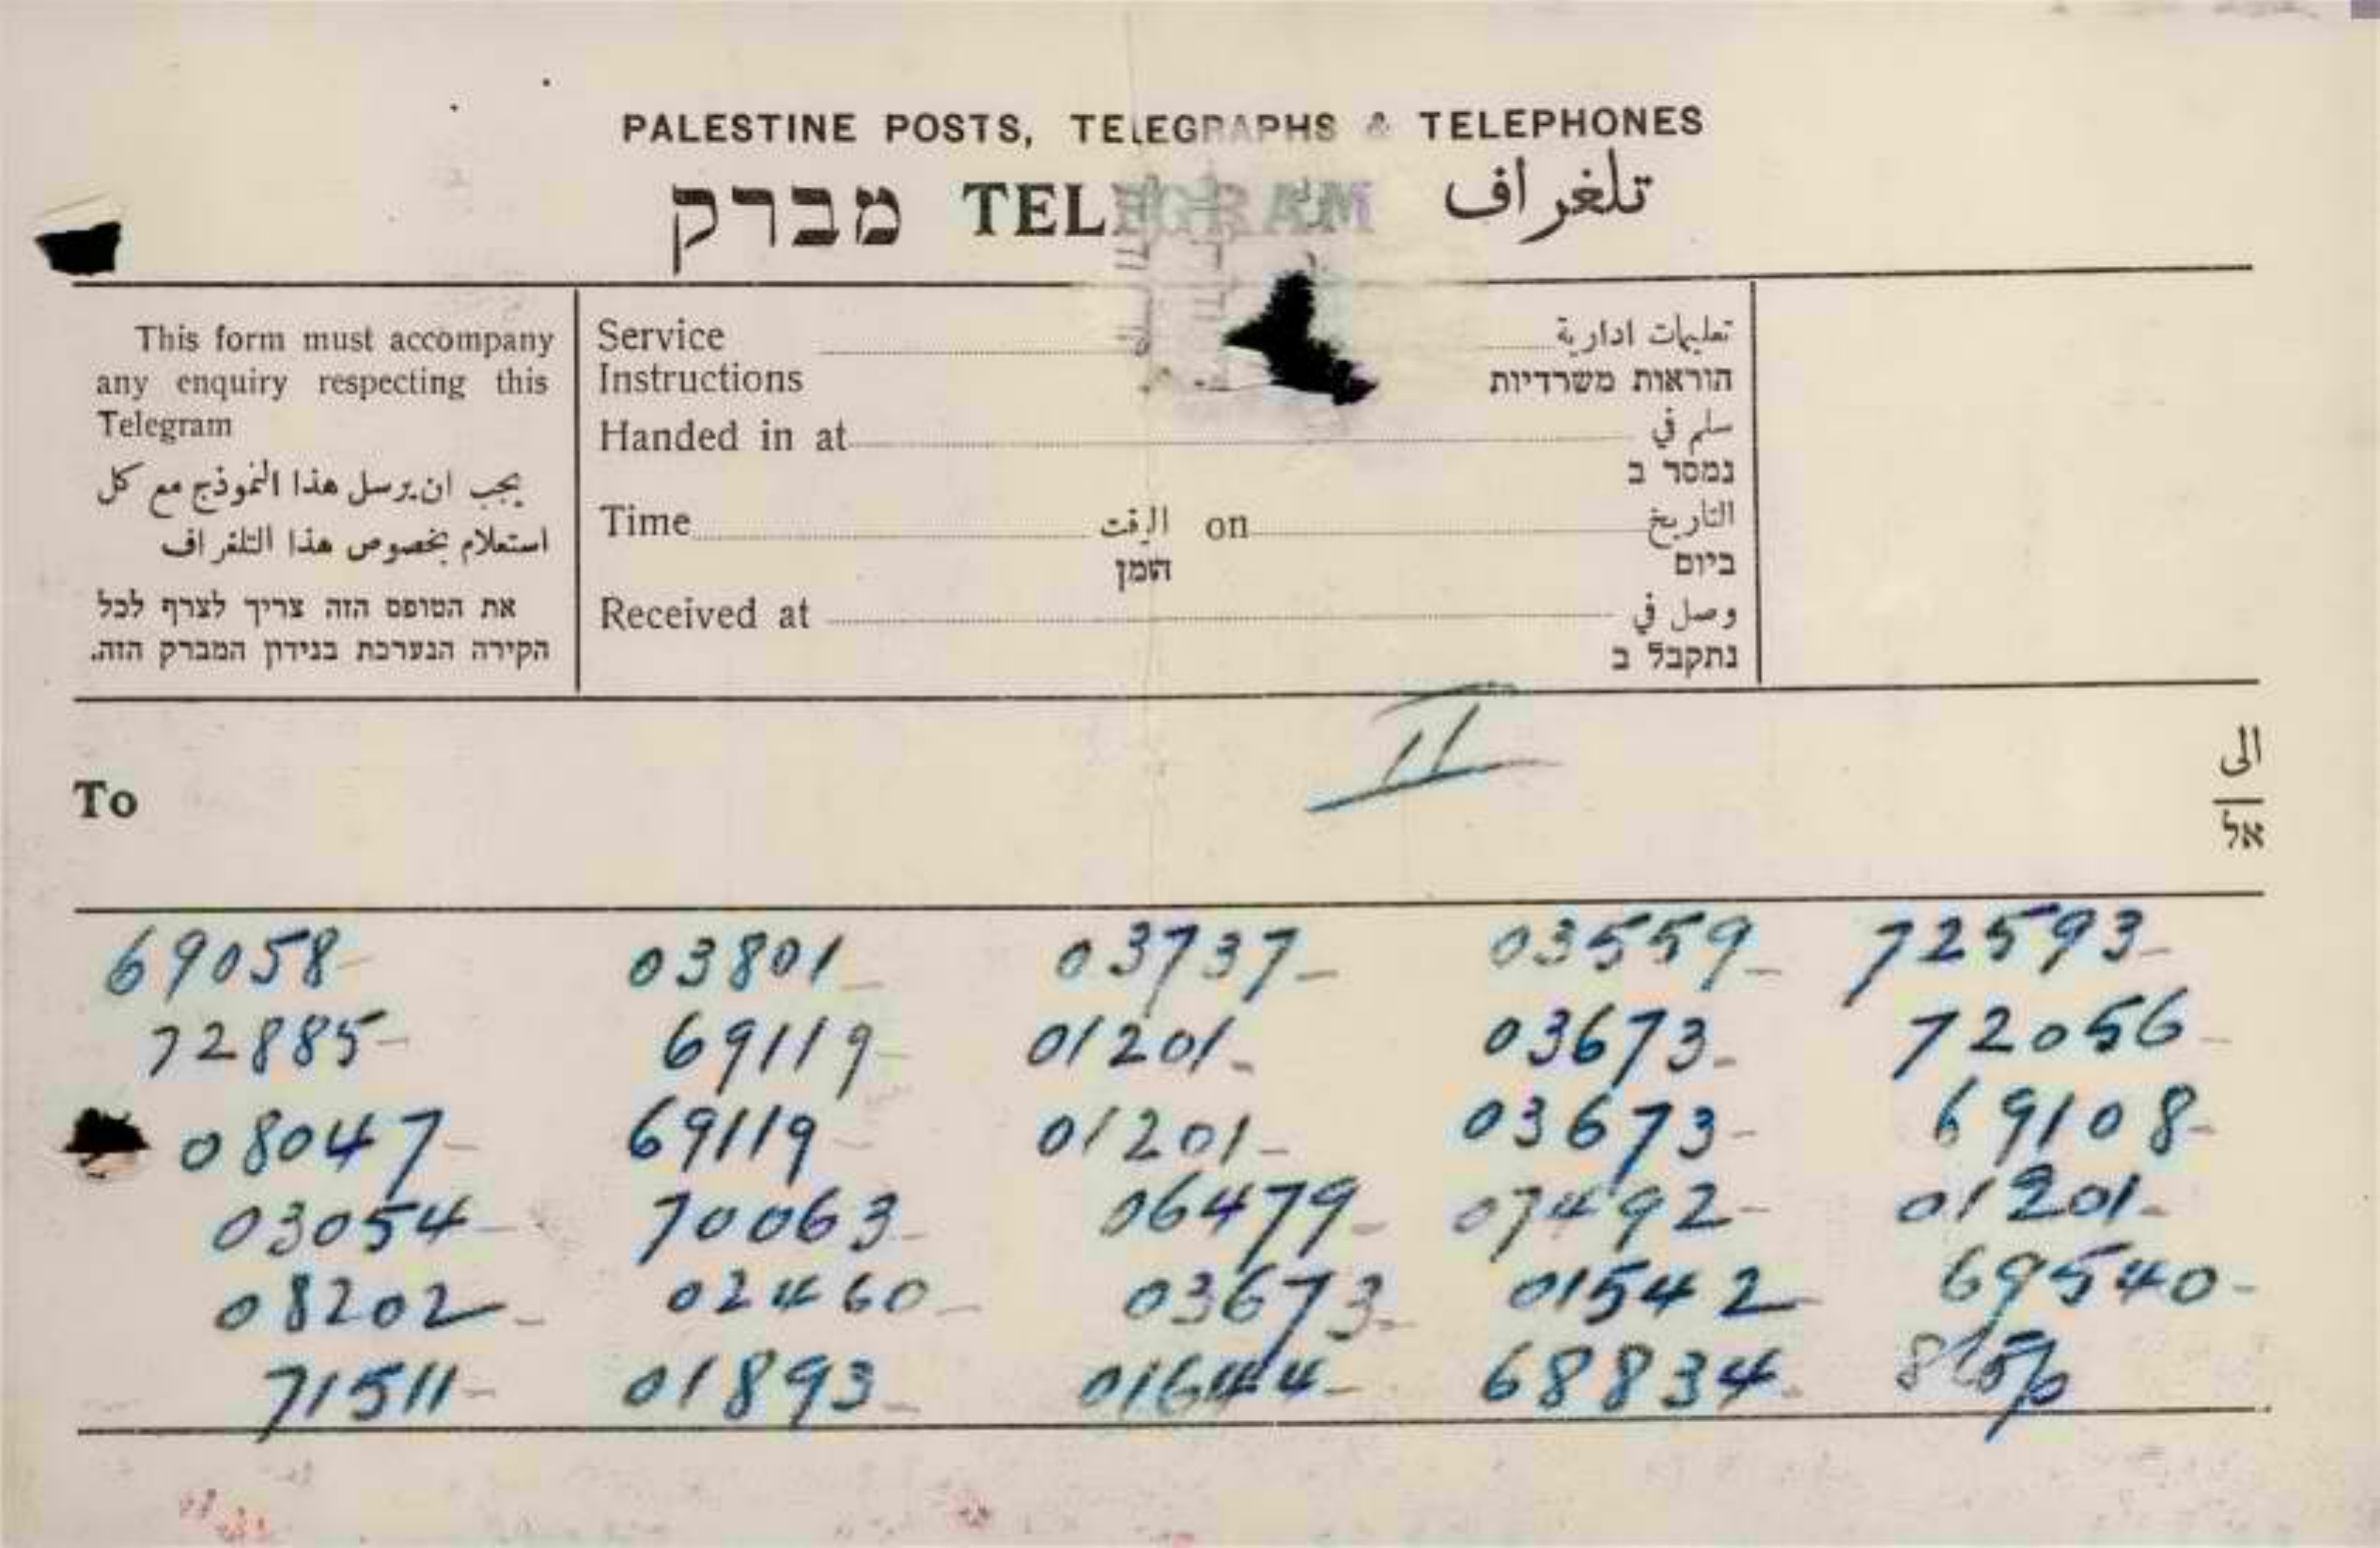 PALESTINE POSTS, TELEGRAPHS & TELEPHONES
מברק TELEGRAM تلغراف
This form must accompany
any enquiry respecting this
Telegram
يجب ان يرسل هذا النموذج مع كل
استعلام بخصوص هذا التلغراف
את הטופס הזה צריך לצרף לכל
חקירה הנערכת בנידון המברק הזה.
Service تعليمات ادارية
Instructions הוראות משרדיות
Handed in at سلم في
נמסר ב
Time الوقت on التاريخ
הזמן ביום
Received at وصل في
נתקבל ב
II
To الى
אל
69058- 03801- 03737- 03559- 72593-
72885- 69119- 01201- 03673- 72056-
08047- 69119 01201- 03673- 69108-
03054- 70063- 06479- 07492- 01201-
08202- 02460- 03673- 01542- 69540-
71511- 01893- 01644- 68834-